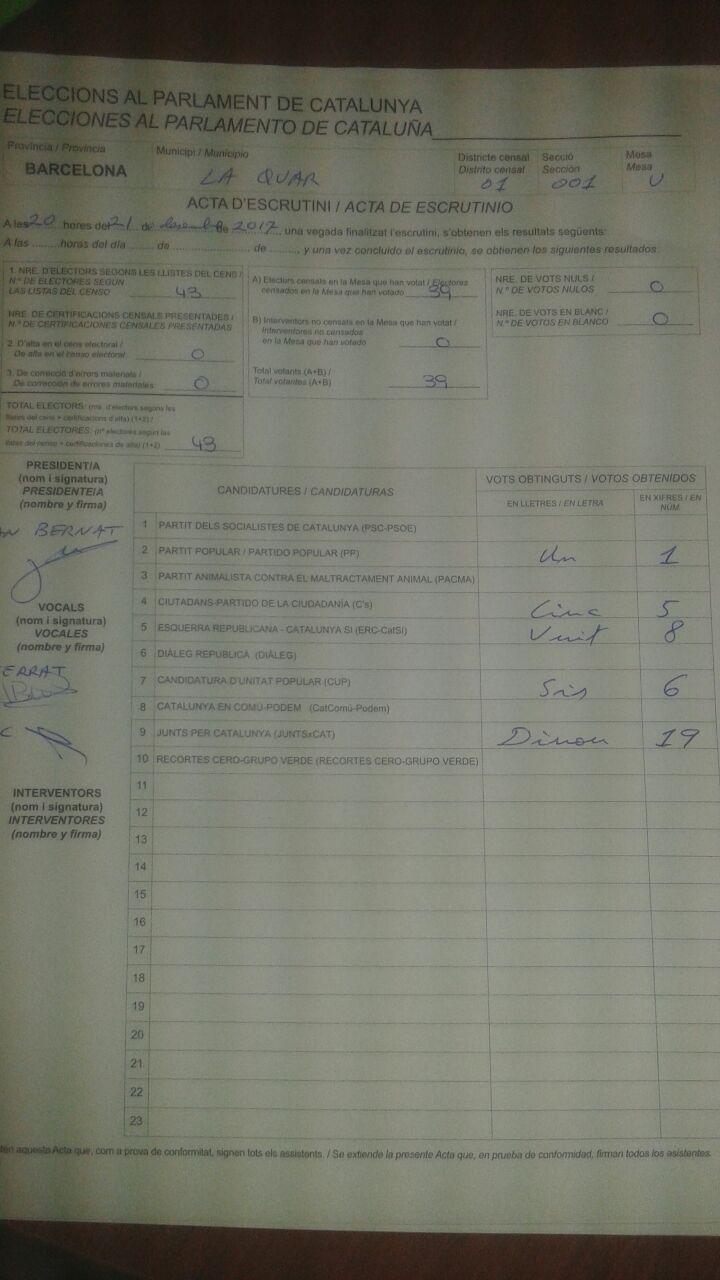 ELECCIONS AL PARLAMENT DE CATALUNYA
ELECCIONES AL PARLAMENTO DE CATALUÑA
Província / Provincia
BARCELONA
Municipi / Municipio
LA QUAR
Districte censal
Distrito censal
01
Secció
Sección
001
Mesa
Mesa
U
ACTA D'ESCRUTINI / ACTA DE ESCRUTINIO
A les 20 hores del 21 de desembre de 2017, una vegada finalitzat l'escrutini, s'obtenen els resultats següents:
A las ........horas del día ...... de .................... de ........, y una vez concluido el escrutinio, se obtienen los siguientes resultados:
1. NRE. D'ELECTORS SEGONS LES LLISTES DEL CENS /
N.º DE ELECTORES SEGÚN
LAS LISTAS DEL CENSO 43
NRE. DE CERTIFICACIONS CENSALS PRESENTADES /
N.º DE CERTIFICACIONES CENSALES PRESENTADAS
2. D'alta en el cens electoral /
De alta en el censo electoral: 0
3. De correcció d'errors materials /
De corrección de errores materiales: 0
TOTAL ELECTORS: (nre. d'electors segons les
llistes del cens + certificacions d'alta) (1+2) /
TOTAL ELECTORES: (nº electores según las
listas del censo + certificaciones de alta) (1+2) 43
A) Electors censats en la Mesa que han votat / Electores
censados en la Mesa que han votado 39
B) Interventors no censats en la Mesa que han votat /
Interventores no censados
en la Mesa que han votado 0
Total votants (A+B) /
Total votantes (A+B) 39
NRE. DE VOTS NULS /
N.º DE VOTOS NULOS 0
NRE. DE VOTS EN BLANC /
N.º DE VOTOS EN BLANCO 0
PRESIDENT/A
(nom i signatura)
PRESIDENTE/A
(nombre y firma)
BERNAT
VOCALS
(nom i signatura)
VOCALES
(nombre y firma)
ERRAT
INTERVENTORS
(nom i signatura)
INTERVENTORES
(nombre y firma)
CANDIDATURES / CANDIDATURAS
VOTS OBTINGUTS / VOTOS OBTENIDOS
EN LLETRES / EN LETRA
EN XIFRES / EN NÚM.
1 PARTIT DELS SOCIALISTES DE CATALUNYA (PSC-PSOE)
2 PARTIT POPULAR / PARTIDO POPULAR (PP) Un 1
3 PARTIT ANIMALISTA CONTRA EL MALTRACTAMENT ANIMAL (PACMA)
4 CIUTADANS-PARTIDO DE LA CIUDADANÍA (C's) Cinc 5
5 ESQUERRA REPUBLICANA - CATALUNYA SÍ (ERC-CatSí) Vuit 8
6 DIÀLEG REPUBLICÀ (DIÀLEG)
7 CANDIDATURA D'UNITAT POPULAR (CUP) Sis 6
8 CATALUNYA EN COMÚ-PODEM (CatComú-Podem)
9 JUNTS PER CATALUNYA (JUNTSxCAT) Dinou 19
10 RECORTES CERO-GRUPO VERDE (RECORTES CERO-GRUPO VERDE)
11
12
13
14
15
16
17
18
19
20
21
22
23
aquesta Acta que, com a prova de conformitat, signen tots els assistents. / Se extiende la presente Acta que, en prueba de conformidad, firman todos los asistentes.